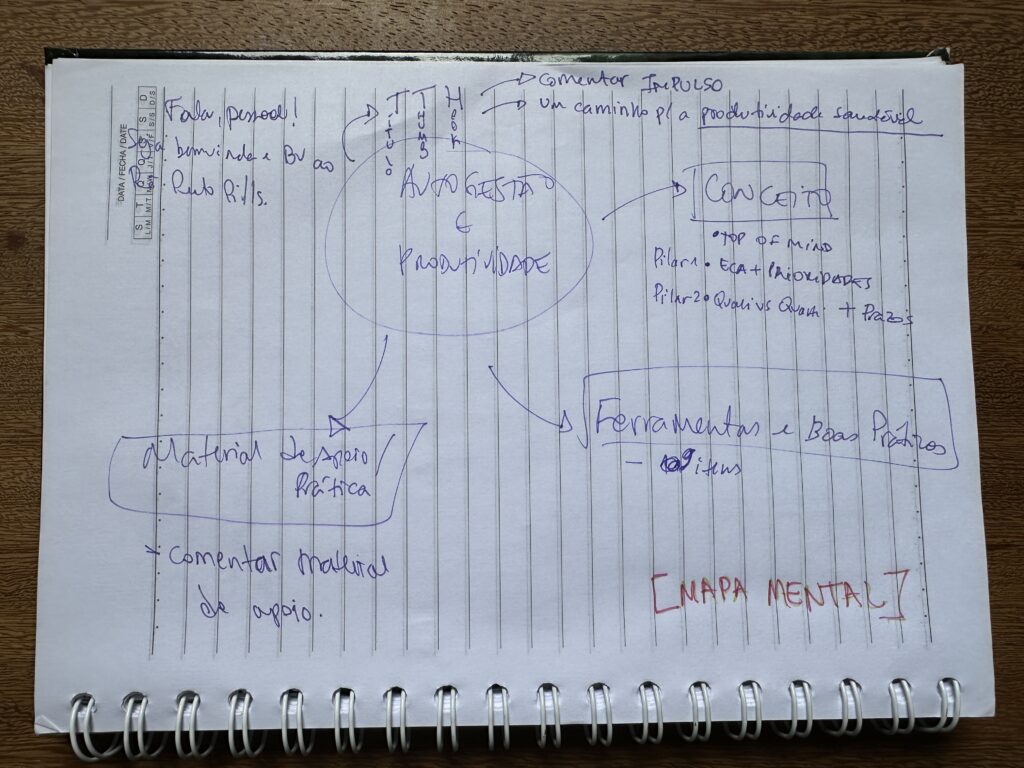 Fala, pessoal!
Seja
bemvindo e BV ao
Pills.
Título
Thumb
Hook
comentar IMPULSO
um caminho p/ a produtividade saudável
AUTOGESTÃO
E
PRODUTIVIDADE
CONCEITO
• TOP OF MIND
Pilar 1 • ECA + PRIORIDADES
Pilar 2 • Quali vs Quanti + Prazos
Ferramentas e Boas Práticas
- 9 itens
Material de Apoio/
Prática
* comentar material
de apoio.
[MAPA MENTAL]
DATA / FECHA / DATE
S T Q Q S S D